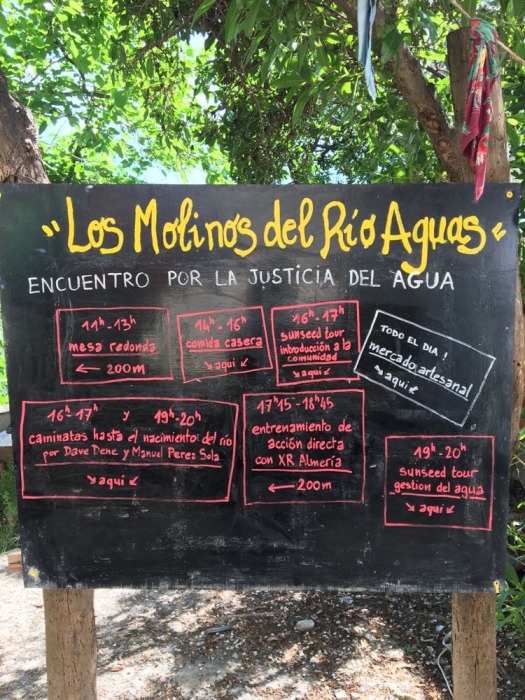 "Los Molinos del Río Aguas"
ENCUENTRO POR LA JUSTICIA DEL AGUA
11h-13h
mesa redonda
← 200m
14h-16h
comida casera
↘ aqui ↙
16h-17h
sunseed tour
introducción a la
comunidad
↘ aqui ↙
TODO EL DIA!
mercado artesanal
↘ aqui ↙
16h-17h y 19h-20h
caminatas hasta el nacimiento del río
por Dave Dene y Manuel Perez Sola
↘ aqui ↙
17h15-18h45
entrenamiento de
acción directa
con XR Almería
← 200m
19h-20h
sunseed tour
gestion del agua
↘ aqui ↙